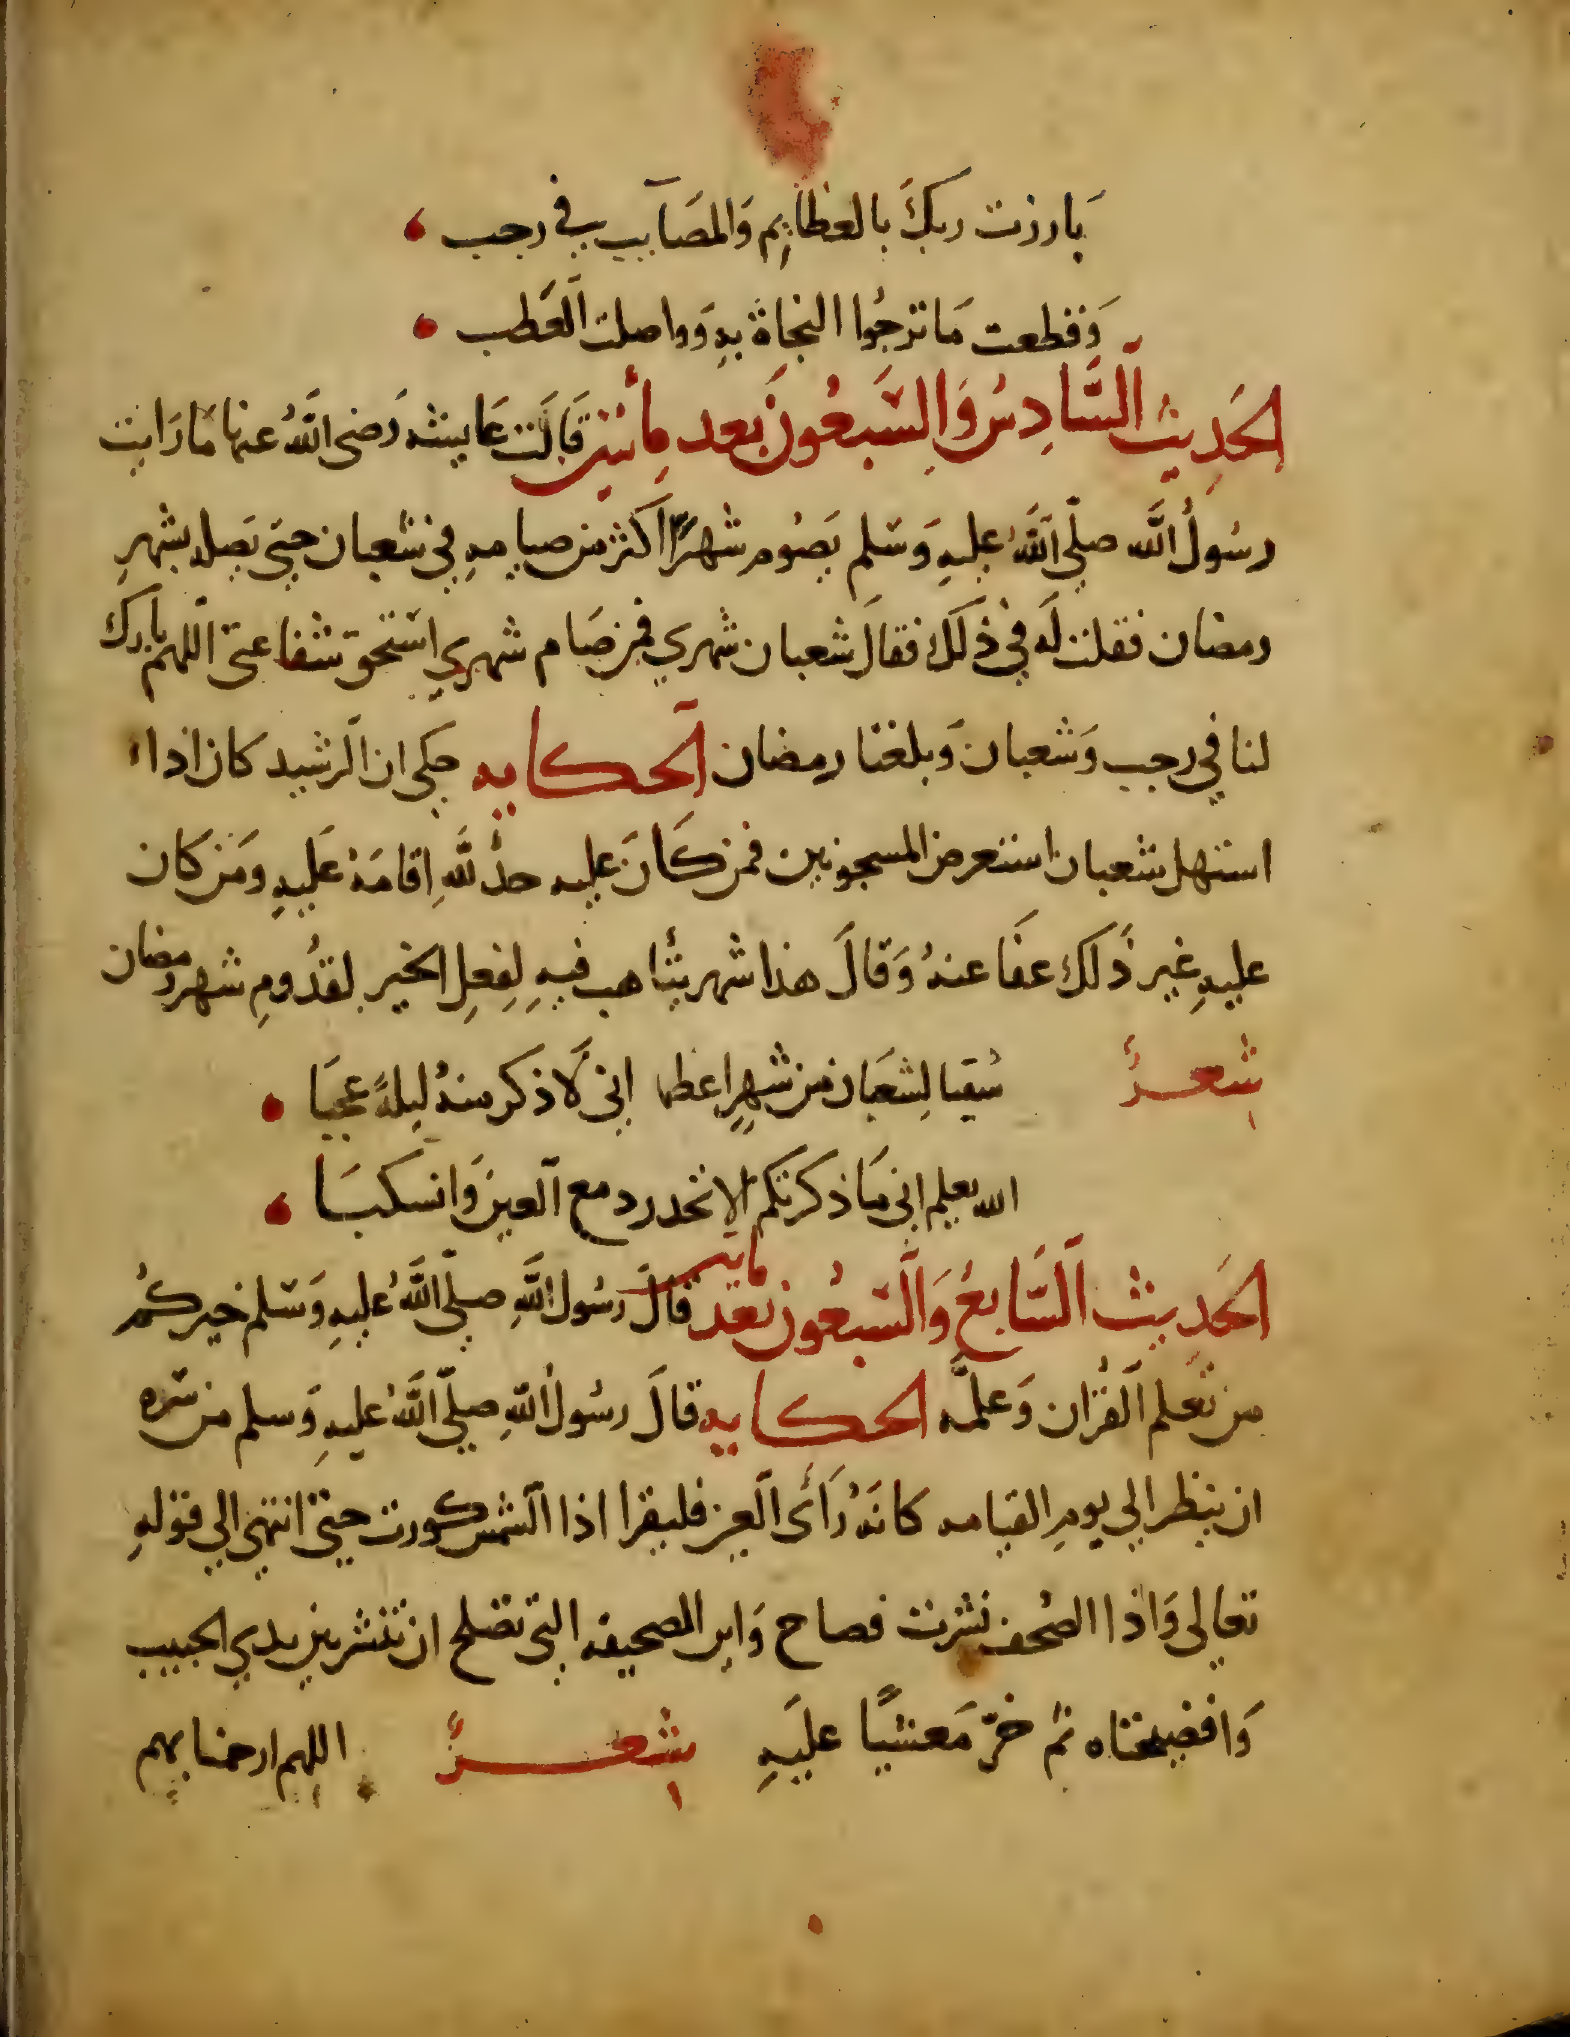 بَارزت ربكَ بالعظايم وَالمصَآيب في رجب
وَقطعت مَا ترجُوا النجاة بهِ وَواصلت العَطب
الحَديث السَّادِسُ وَالسَّبعُونَ بَعد مِأتين قَالَت عَايشه رَضى اللَّهُ عنها مَا رَايت
رسُولُ اللَّه صلّى اللَّهُ عليهِ وَسَلم يَصُوم شهرًا اكثر من صيامهِ في شعبان حتى يَصله بشهرِ
رمضان فقلت لَه في ذَلكَ فقالَ شعبان شهري فمن صَام شهري استحق شفاعتي اللهم بارك
لنا في رجب وَشعبان وَبلغنا رمضان الحكايه حكى ان الرشيد كان اذا
استهل شعبان استعرض المسجونين فمن كَانَ عليه حدُ للَّهِ اقامَهُ عَليهِ ومَن كان
عليهِ غير ذَلك عفَا عنهُ وَقالَ هذا شهر يتأهب فيهِ لِفعلِ الخير لقدُومِ شهر رمضان
شعرٌ سُقيا لِشعبَان من شهرٍ اعظما اني لَاذكر منهُ ليلةً عجبَا
الله يعلم اني مَا ذكرتكم الا تحدر دمع العين وَانسكبَا
الحَديث السَّابعُ وَالسَّبعُون بَعد مايتين قالَ رسُول اللَّهِ صلّى اللَّهُ عليهِ وَسَلم خيركُم
من تعَلم القُران وَعلمَّه الحكايه قالَ رسُولُ اللَّهِ صلّى اللَّهُ عليهِ وَسلم من سَره
ان ينظر الي يومِ القيامه كانهُ رَأىَ العين فليقرا اذا الشمس كورت حتى انتهى الي قولهِ
تعالى وَاذا الصُحف نشرت فصاح وَاين الصحيفه التي تصَلح ان تنشر بين يدي الحبيب
وَافضيحتاه ثم خرّ مَغشيًا عليَهِ شعرٌ اللهم ارحمنا بهم